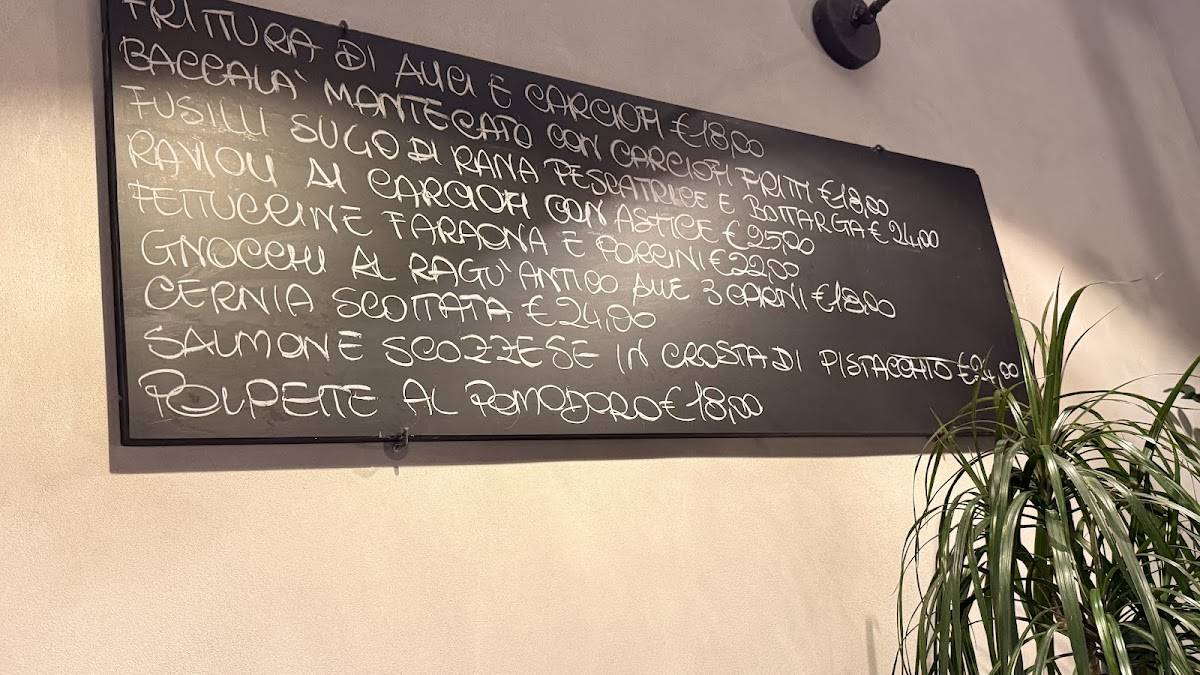 FRITTURA DI ALICI E CARCIOFI €18,00
BACCALA' MANTECATO CON CARCIOFI FRITTI €18,00
FUSILLI SUGO DI RANA PESCATRICE E BOTTARGA € 24,00
RAVIOLI DI CARCIOFI CON ASTICE €25,00
FETTUCCINE FARAONA E PORCINI €22,00
GNOCCHI AL RAGU' ANTICO ALLE 3 CARNI €18,00
CERNIA SCOTTATA €24,00
SALMONE SCOZZESE IN CROSTA DI PISTACCHIO €24,00
POLPETTE AL POMODORO €18,00